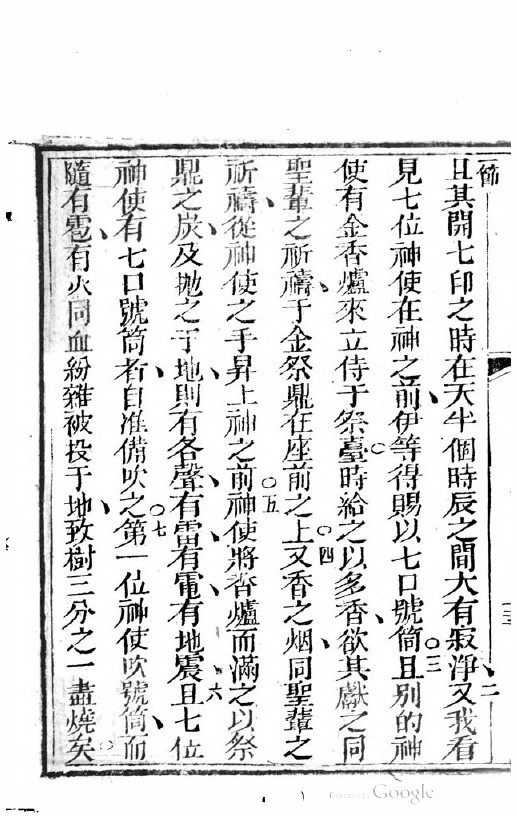 節
且其開七印之時在天半個時辰之間大有寂淨二又我看
見七位神使在神之前伊等得賜以七口號筒三且別的神
使有金香爐來立侍于祭臺時給之以多香欲其獻之同
聖輩之祈禱于金祭鼎在座前之上四又香之烟同聖輩之
祈禱從神使之手昇上神之前五神使將香爐而滿之以祭
鼎之炭及拋之于地則有各聲有雷有電有地震六且七位
神使有七口號筒者自准備吹之七第一位神使吹號筒而
隨有雹有火同血紛雜被投于地致樹三分之一盡燒矣
Digitized by Google